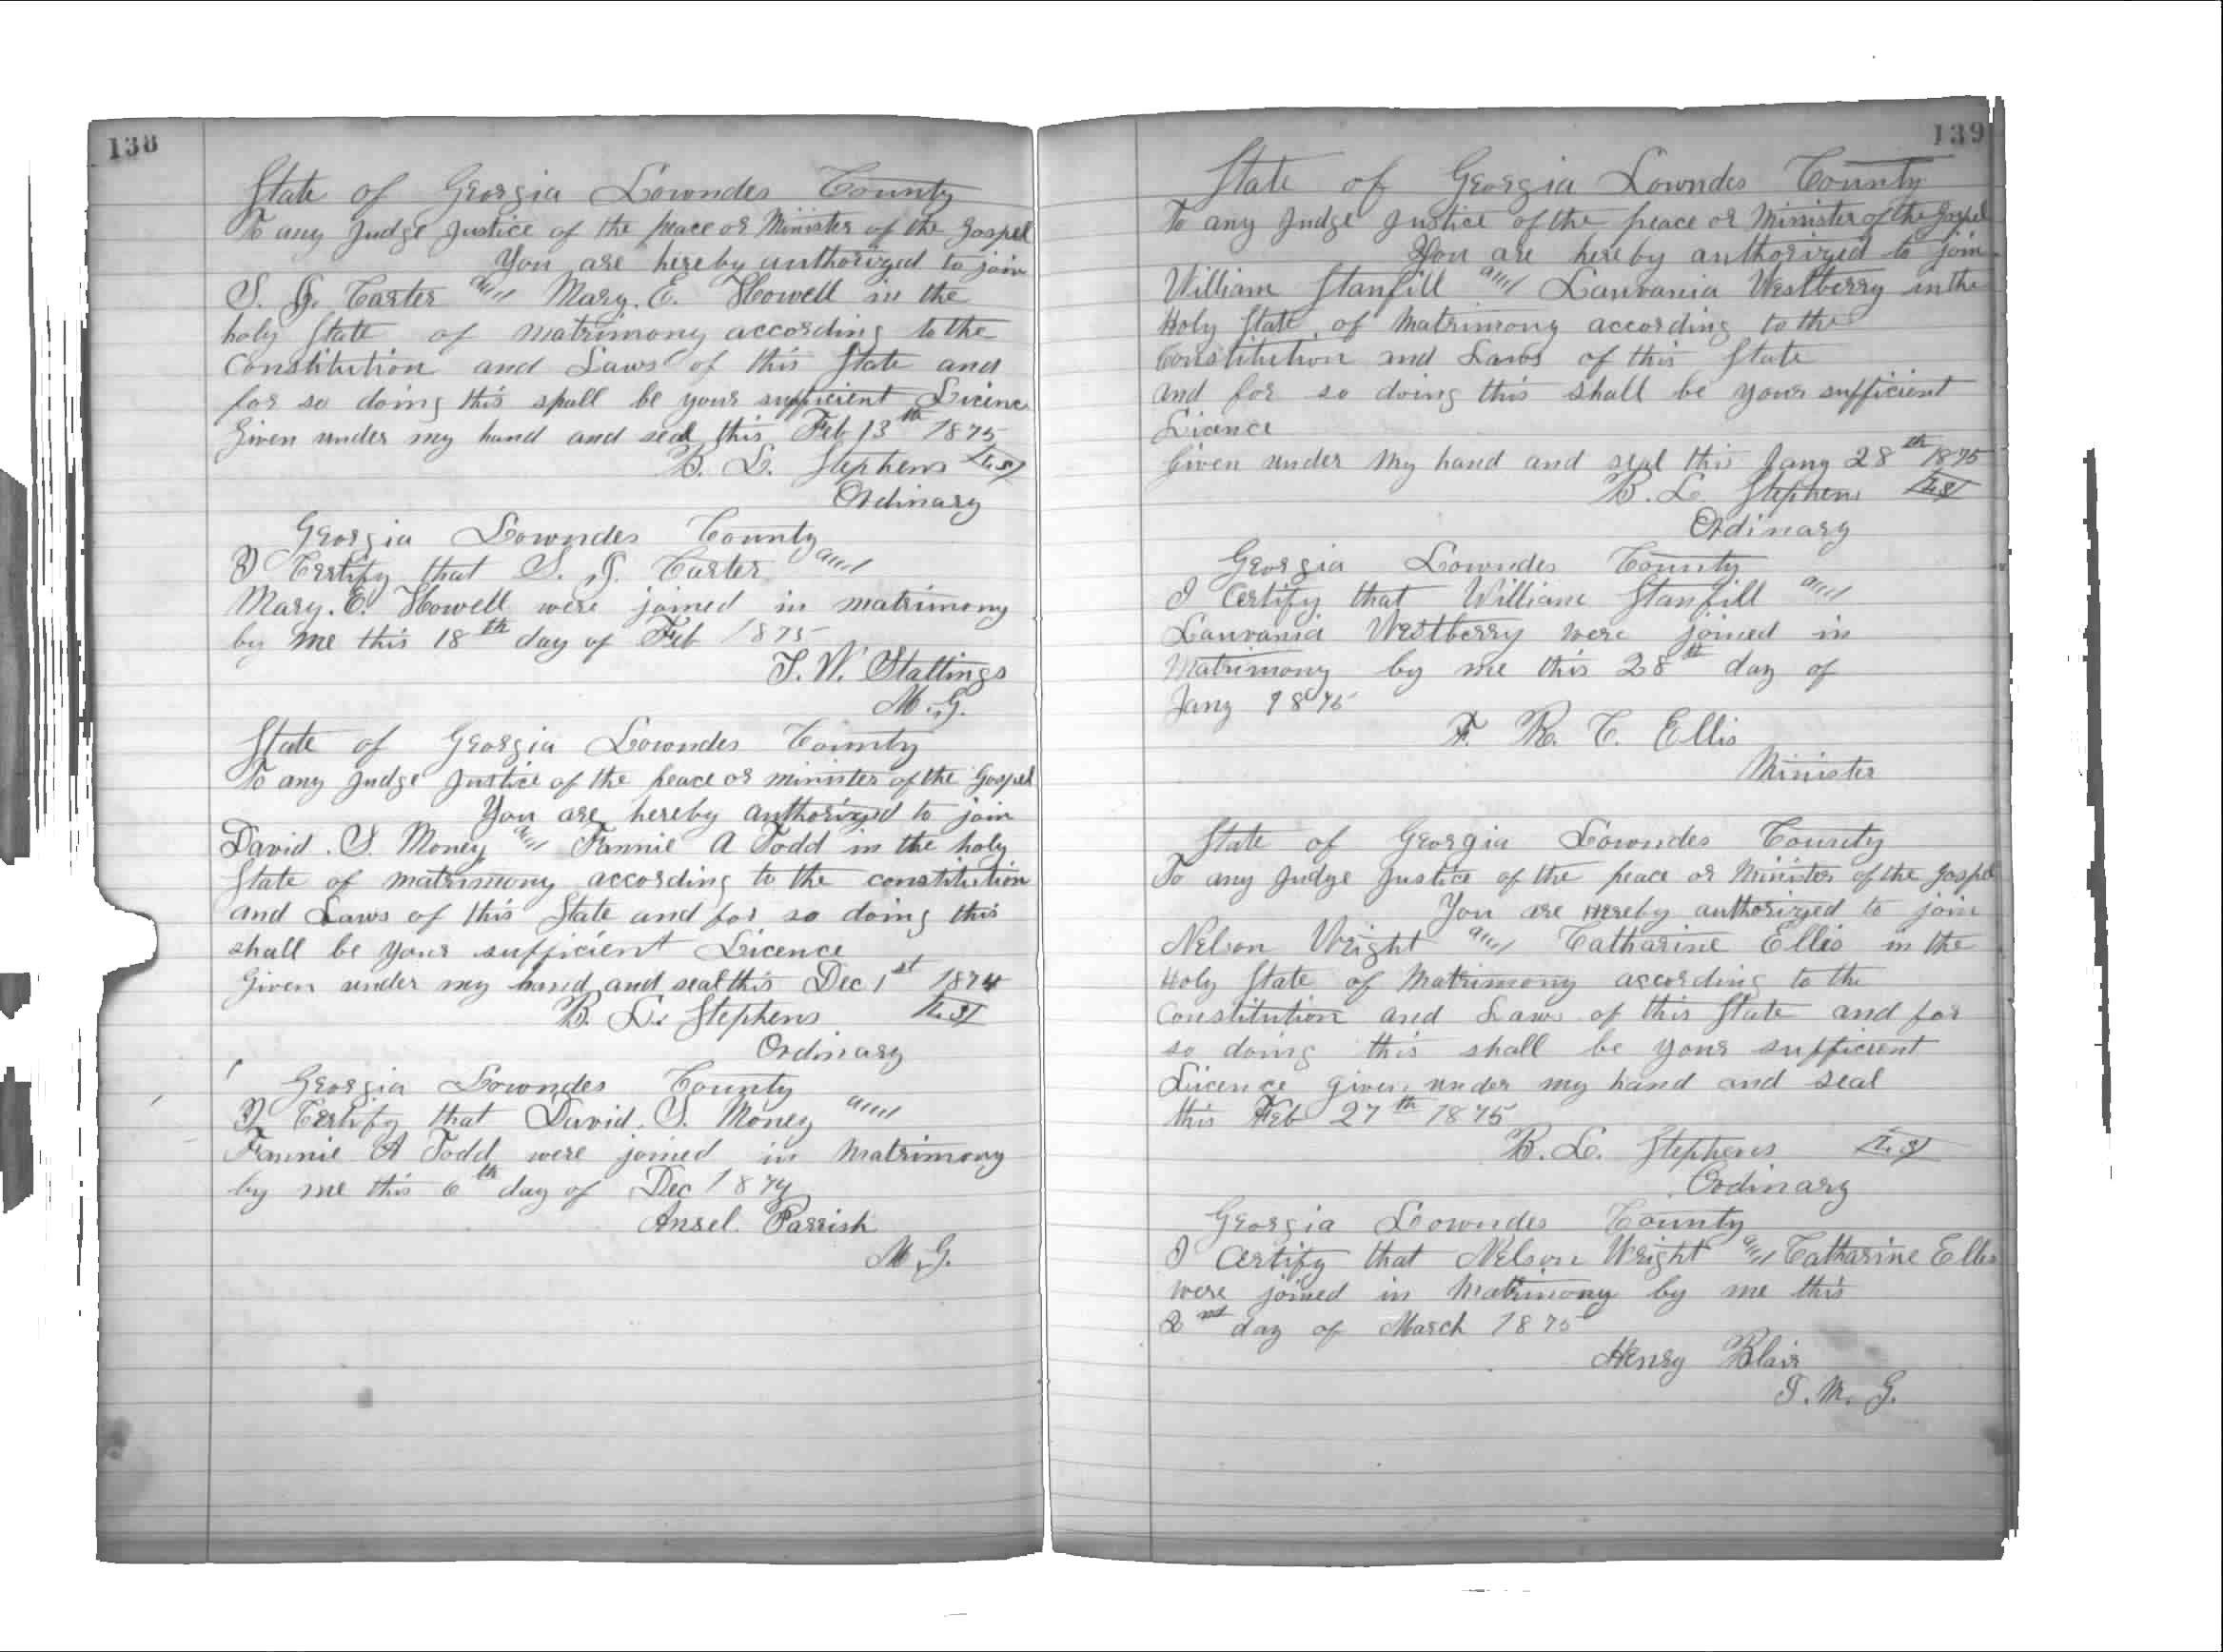 138
State of Georgia Lowndes County
To any Judge Justice of the peace or Minister of the Gospel
You are hereby authorized to join
S. J. Carter and Mary. E. Howell in the
holy State of matrimony according to the
Constitution and Laws of this State and
for so doing this shall be your sufficient Licence
Given under my hand and seal this Feb 13th 1875
B. L. Stephens L.S.
Ordinary
Georgia Lowndes County
I Certify that S. J. Carter and
Mary. E. Howell were joined in matrimony
by me this 18th day of Feb 1875
T. W. Stallings
M. G.
State of Georgia Lowndes County
To any Judge Justice of the peace or minister of the Gospel
You are hereby authorized to join
David. S. Money and Fannie A Todd in the holy
State of matrimony according to the constitution
and Laws of this State and for so doing this
shall be your sufficient Licence
Given under my hand and seal this Dec 1st 1874
B. L. Stephens L.S.
Ordinary
Georgia Lowndes County
I Certify that David. S. Money and
Fannie A Todd were joined in Matrimony
by me this 6th day of Dec 1874
Ansel. Parrish
M. G.
139
State of Georgia Lowndes County
To any Judge Justice of the peace or Minister of the Gospel
You are hereby authorized to join
William Stanfill and Laurania Westberry in the
Holy State of Matrimony according to the
Constitution and Laws of this State
and for so doing this shall be your sufficient
Licence
Given under my hand and seal this Jany 28th 1875
B. L. Stephens L.S.
Ordinary
Georgia Lowndes County
I Certify that William Stanfill and
Laurania Westberry were joined in
Matrimony by me this 28th day of
Jany 1875
F. R. C. Ellis
Minister
State of Georgia Lowndes County
To any Judge Justice of the peace or Minister of the Gospel
You are Hereby authorized to join
Nelson Wright and Catharine Ellis in the
Holy State of Matrimony according to the
Constitution and Laws of this State and for
so doing this shall be your sufficient
Licence given under my hand and seal
this Feb 27th 1875
B. L. Stephens L.S.
Ordinary
Georgia Lowndes County
I Certify that Nelson Wright and Catharine Ellis
were joined in Matrimony by me this
2nd day of March 1875
Henry Blair
T. M. G.